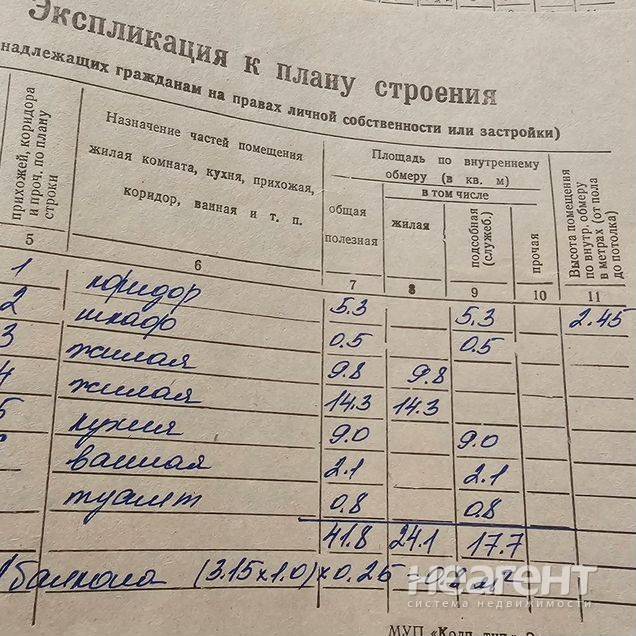 Экспликация к плану строения
надлежащих гражданам на правах личной собственности или застройки)
прихожей, коридора
и проч. по плану
строки
Назначение частей помещения
жилая комната, кухня, прихожая,
коридор, ванная и т. п.
Площадь по внутреннему
обмеру (в кв. м)
в том числе
общая
полезная
жилая
подсобная
(служеб.)
прочая
Высота помещения
по внутр. обмеру
в метрах (от пола
до потолка)
5 6 7 8 9 10 11
1 коридор 5.3 5.3 2.45
2 шкаф 0.5 0.5
3 жилая 9.8 9.8
4 жилая 14.3 14.3
5 кухня 9.0 9.0
ванная 2.1 2.1
туалет 0.8 0.8
41.8 24.1 17.7
балкона (3.15x1.0)x0.25
неагент
система недвижимости
МУП